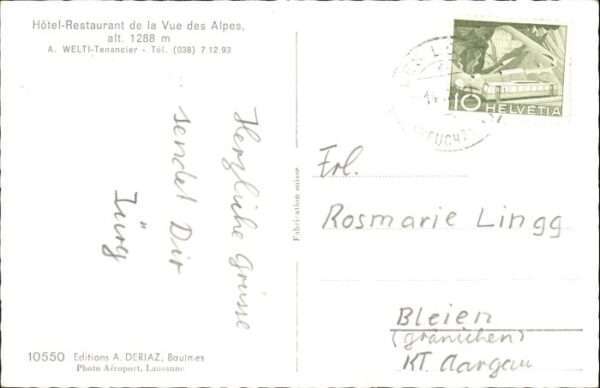 Hôtel-Restaurant de la Vue des Alpes,
alt. 1288 m
A. WELTI-Tenancier - Tél. (038) 7.12.93
Herzliche Grüsse
sendet Dir
Jürg
10550 Editions A. DERIAZ, Baulmes
Photo Aéroport, Lausanne
Fabrication suisse
10 HELVETIA
Frl.
Rosmarie Lingg
Bleien
(gränichen)
KT. Aargau